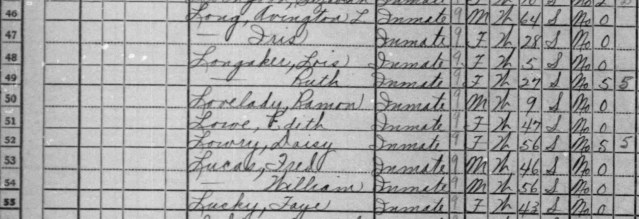 46 Long, Ovington L Inmate 9 M W 64 S No 0
47 — Iris Inmate 9 F W 28 S No 0
48 Longaker, Lois Inmate 9 F W 5 S No 0
49 — Ruth Inmate 9 F W 27 S No 5 5
50 Lovelady, Ramon Inmate 9 M W 9 S No 0
51 Lowe, Edith Inmate 9 F W 47 S No 0
52 Lowry, Daisy Inmate 9 F W 56 S No 5 5
53 Lucas, Fred Inmate 9 M W 46 S No 0
54 — William Inmate 9 M W 56 S No 0
55 Lucky, Faye Inmate 9 F W 43 S No 0